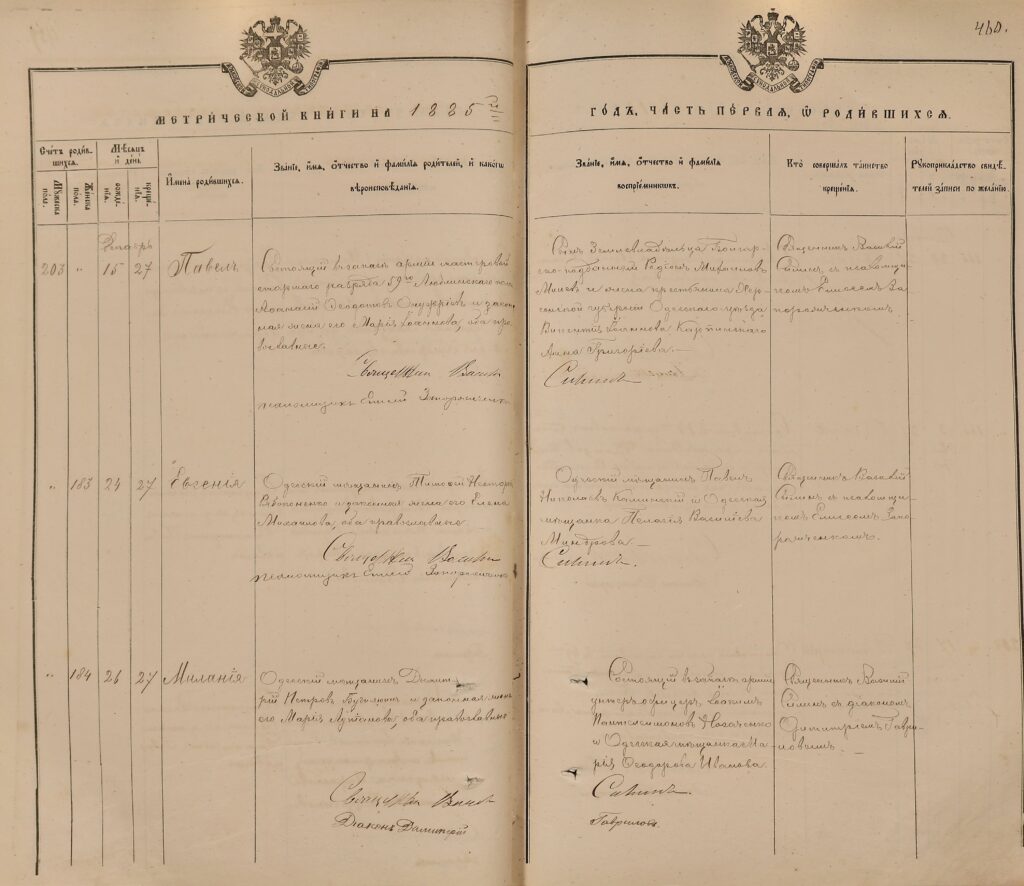 460.
МЕТРИ́ЧЕСКОЙ КНИ́ГИ НА 1885 й
ГО́ДЪ, ЧА́СТЬ ПЕ́РВАЯ, Ѡ РОДИ́ВШИХСЯ.
Сче́тъ роди́вшихся.
Му́жеска по́ла.
Же́нска по́ла.
Мѣ́сяцъ и де́нь
рожде́нія.
креще́нія.
И҆мена̀ роди́вшихся.
Зва́ніе, и҆́мя, ѻ҆́тчество и҆ фами́лія роди́телей, и҆ како́гѡ
вѣроисповѣ́данія.
Зва́ніе, и҆́мя, ѻ҆́тчество и҆ фами́лія
воспріе́мниковъ.
Кто̀ соверша́лъ та́инство
креще́нія.
Рꙋкоприкла́дство свидѣ́телей за́писи по жела́нію.
Декабрь
203 " 15 27 Павелъ
Состоящій въ запасѣ арміи мастеровой
старшаго разряда 59го Люблинскаго полка
Афанасій Ѳеодотовъ и законная жена его Марія, оба православные.
Священникъ Василій
псаломщикъ Елисей Запорожченко
Сынъ Землевладѣльца
и жена крестьянина Херсонской губерніи Одесскаго уѣзда
Викентія
Анна Григоріева.
Силинъ
Священникъ Василій
Силинъ съ псаломщикомъ Елисеемъ Запорожченкомъ
" 183 24 27 Евгенія
Одесскій мѣщанинъ Тимофей
и законная жена его Елена
Михаилова, оба православные.
Священникъ Василій
псаломщикъ Елисей Запорожченко
Одесскій мѣщанинъ Павелъ
Николаевъ Каминскій и Одесская
мѣщанка Пелагія Васильева
Мундрова.
Силинъ.
Священникъ Василій
Силинъ съ псаломщикомъ Елисеемъ Запорожченкомъ.
" 184 26 27 Миланія
Одесскій мѣщанинъ Димитрій Петровъ и законная жена
его Марія, оба православные
Священникъ Василій
Діаконъ Димитрій
Состоящій въ запасѣ арміи
унтеръ-офицеръ Іоакимъ
Пантелеимоновъ
и Одесская мѣщанка Марія Ѳеодорова Иванова.
Силинъ.
Гавриловъ.
Священникъ Василій
Силинъ съ діакономъ
Димитріемъ Гавриловымъ.